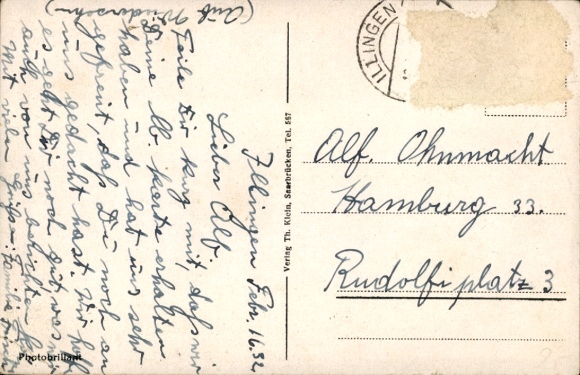 Illingen Febr. 16. 32
Lieber Alf.
Teile Dir kurz mit, dass wir
Deine lb. Karte erhalten
haben und hat uns sehr
gefreut, daß Du noch an
uns gedacht hast. Wir
es geht Dir noch gut, was
auch von uns
Mit vielen Grüßen Familie
(Auf Wiedersehn)
Photobrillant
Verlag Th. Klein, Saarbrücken, Tel. 557
ILLINGEN
Alf. Ohnmacht
Hamburg 33.
Rudolfiplatz 3